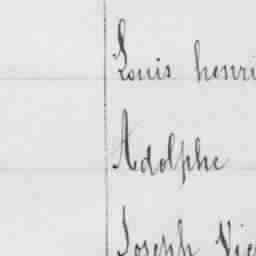 Louis henri
Adolphe
Joseph Vic